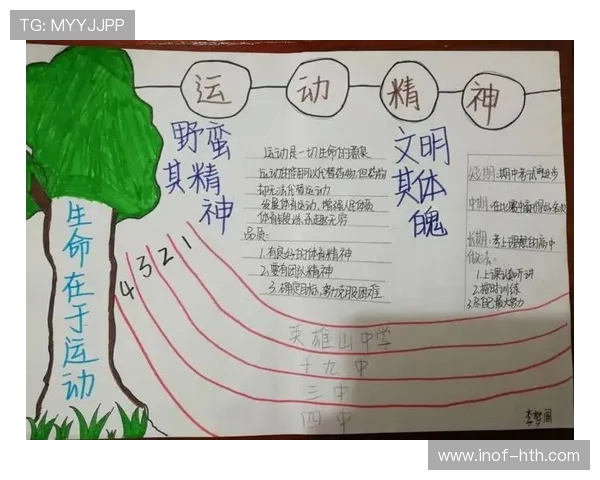 TG: MYYJJPP
运动精神
野蛮
其精神
文明
其体
魄
生命在于运动
运动是一切生命的源泉
运动的作用可以代替药物,但药物
却无法代替运动
发展体育运动,增强人民体质
品质:
1.有良好的体育精神
2.要有团队精神
3.确定目标,努力克服困难
短期:期中考试进步
长期:考上理想的高中
做法:
1.上课认真听讲
2.按时训练
3.尽自己最大努力
1
2
3
4
英雄山中学
十九中
三中
四中
www.inof-hth.com